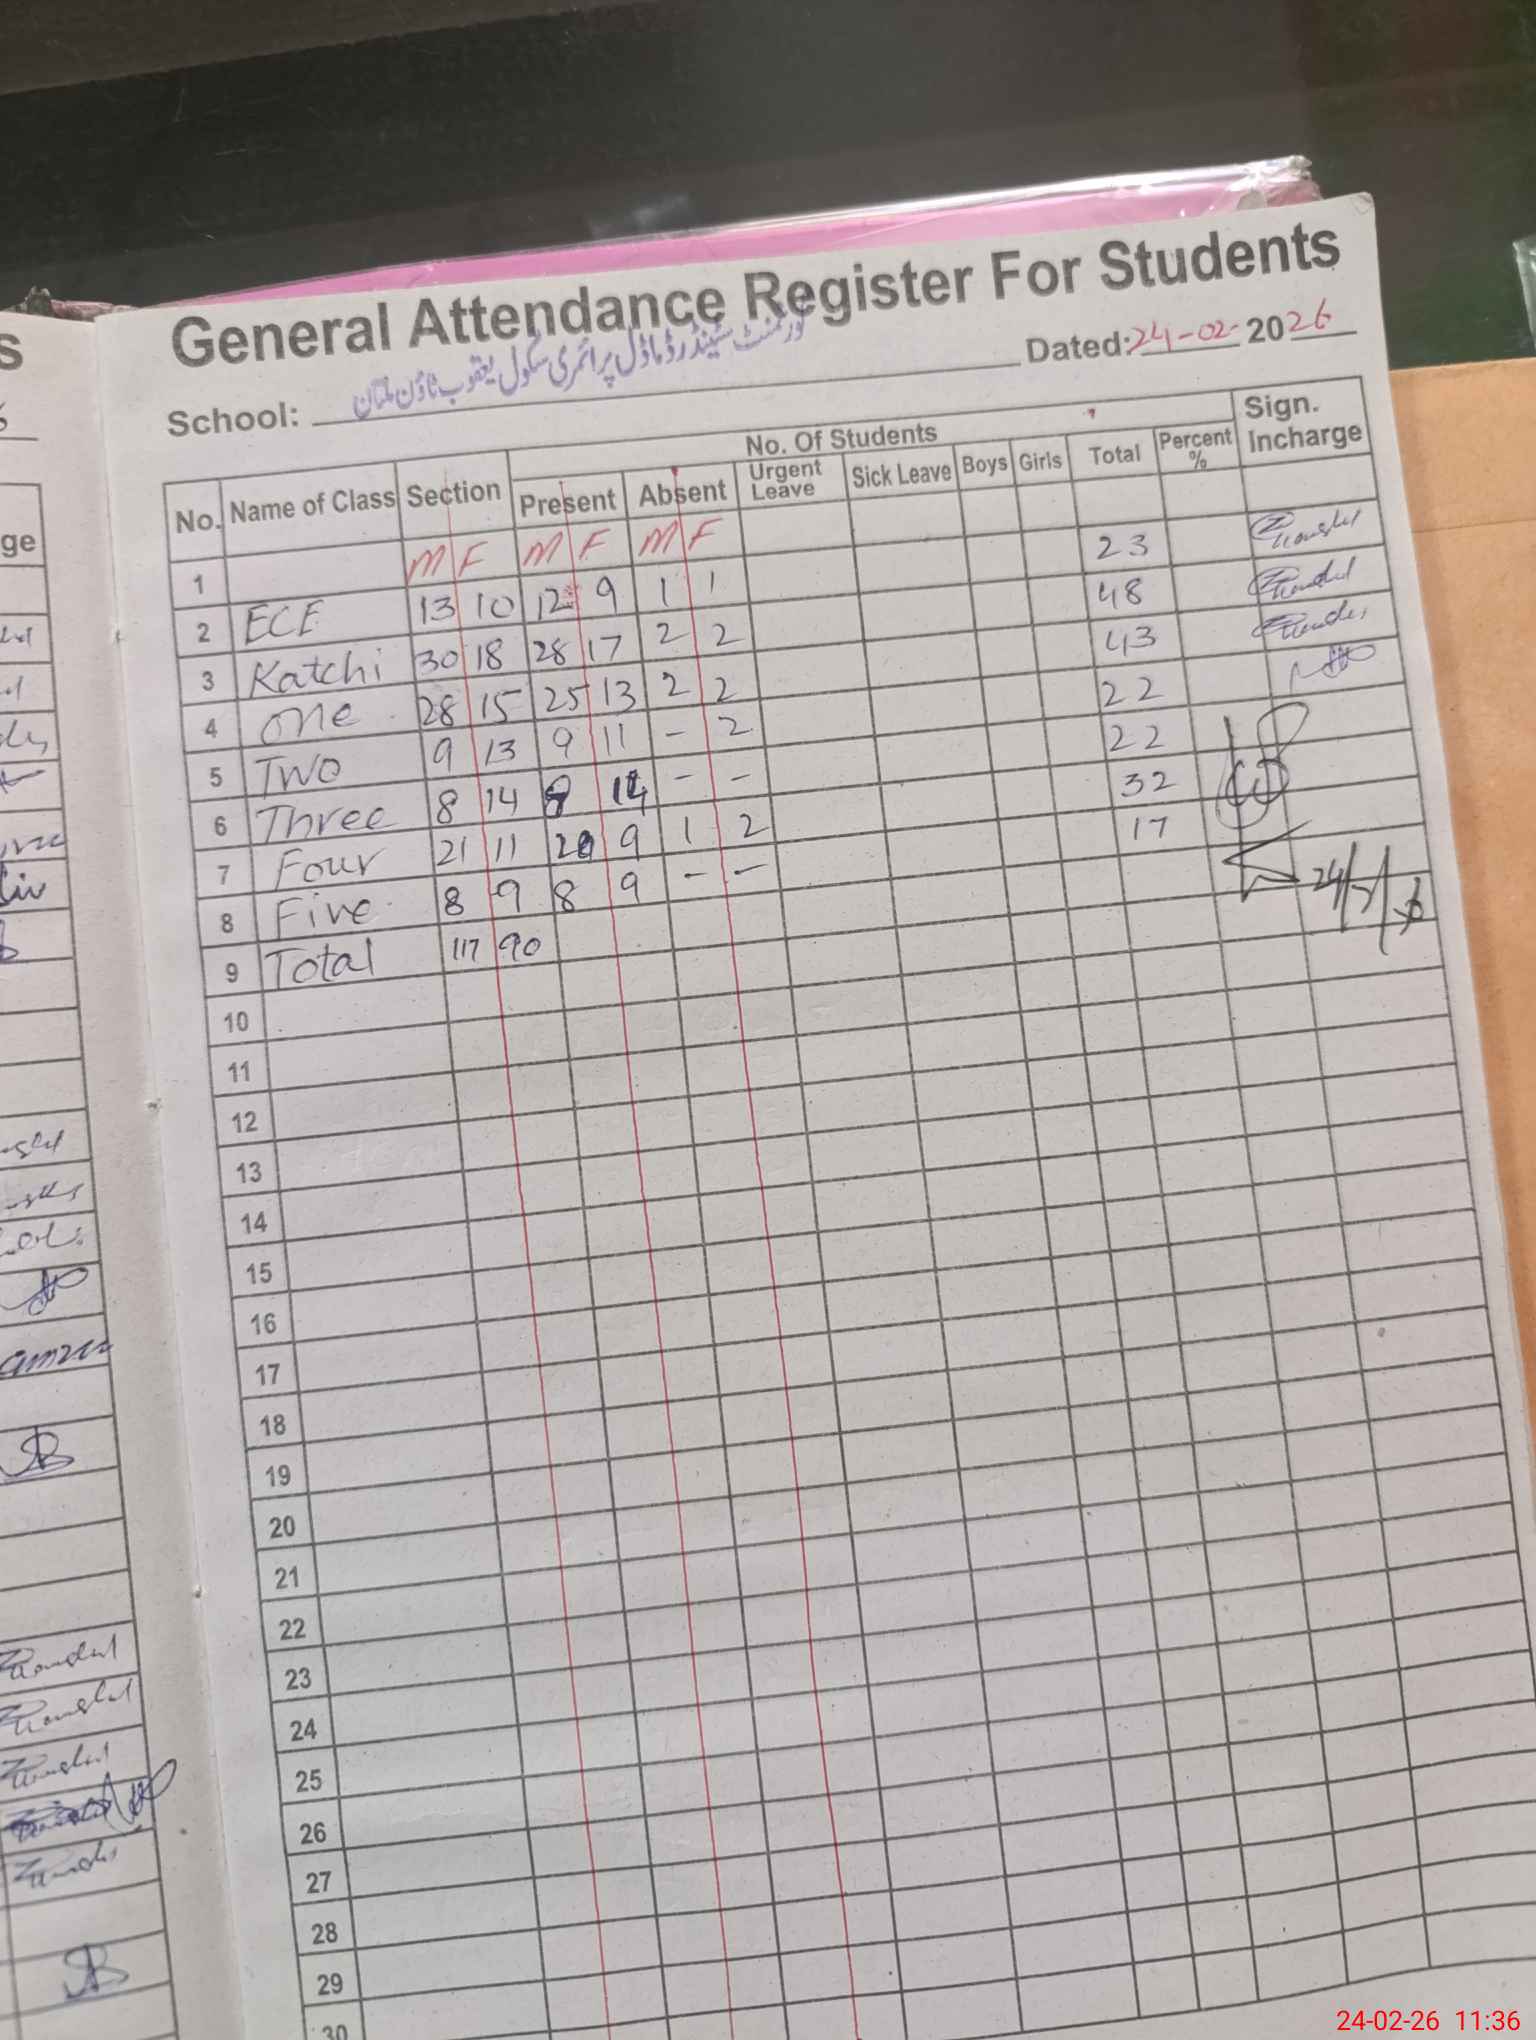 General Attendance Register For Students
Dated: 24-02-2026
School: گورنمنٹ سٹینڈرڈ ماڈل پرائمری سکول یعقوب ٹاؤن ملتان
No. Of Students
No. Name of Class Section Present Absent Urgent Leave Sick Leave Boys Girls Total Percent % Sign. Incharge
1 M F M F M F
2 ECE 13 10 12 9 1 1 23
3 Katchi 30 18 28 17 2 2 48
4 One 28 15 25 13 2 2 43
5 Two 9 13 9 11 - 2 22
6 Three 8 14 8 14 - - 22
7 Four 21 11 20 9 1 2 32
8 Five 8 9 8 9 - - 17
9 Total 117 90
10
11
12
13
14
15
16
17
18
19
20
21
22
23
24
25
26
27
28
29
30
24-02-26 11:36